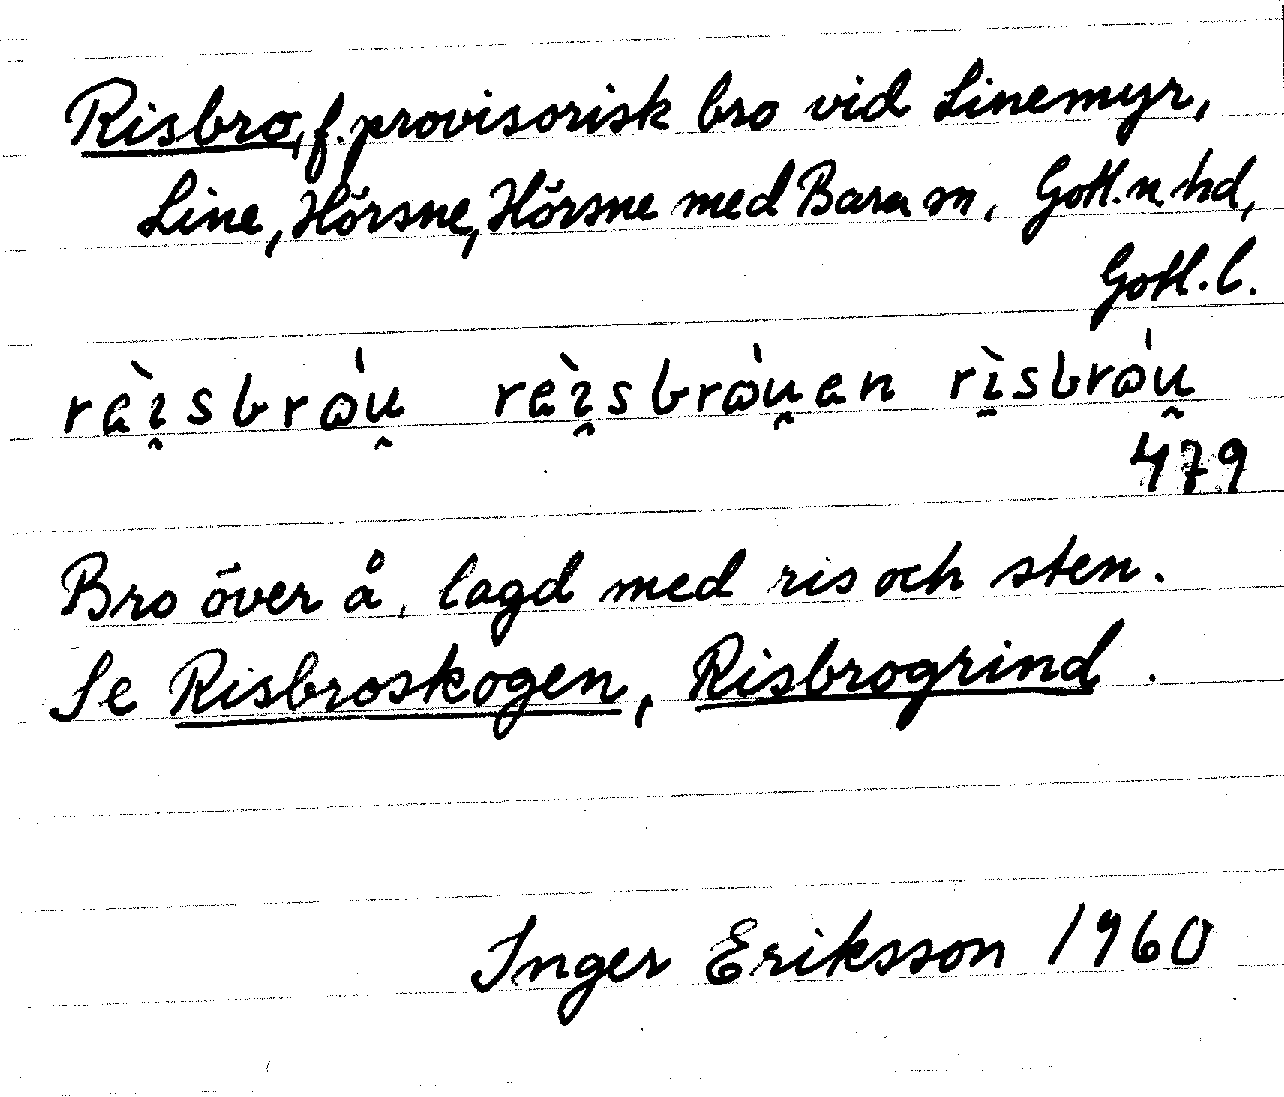 Risbro, f. provisorisk bro vid Linemyr,
Line, Hörsne, Hörsne med Bara sn, Gotl. n. hd,
Gotl. l.
rèi̯sbrὼu̯ rèi̯sbrὼu̯en rìsbrὼu̯
479
Bro över å, lagd med ris och sten.
Se Risbroskogen, Risbrogrind.
Inger Eriksson 1960